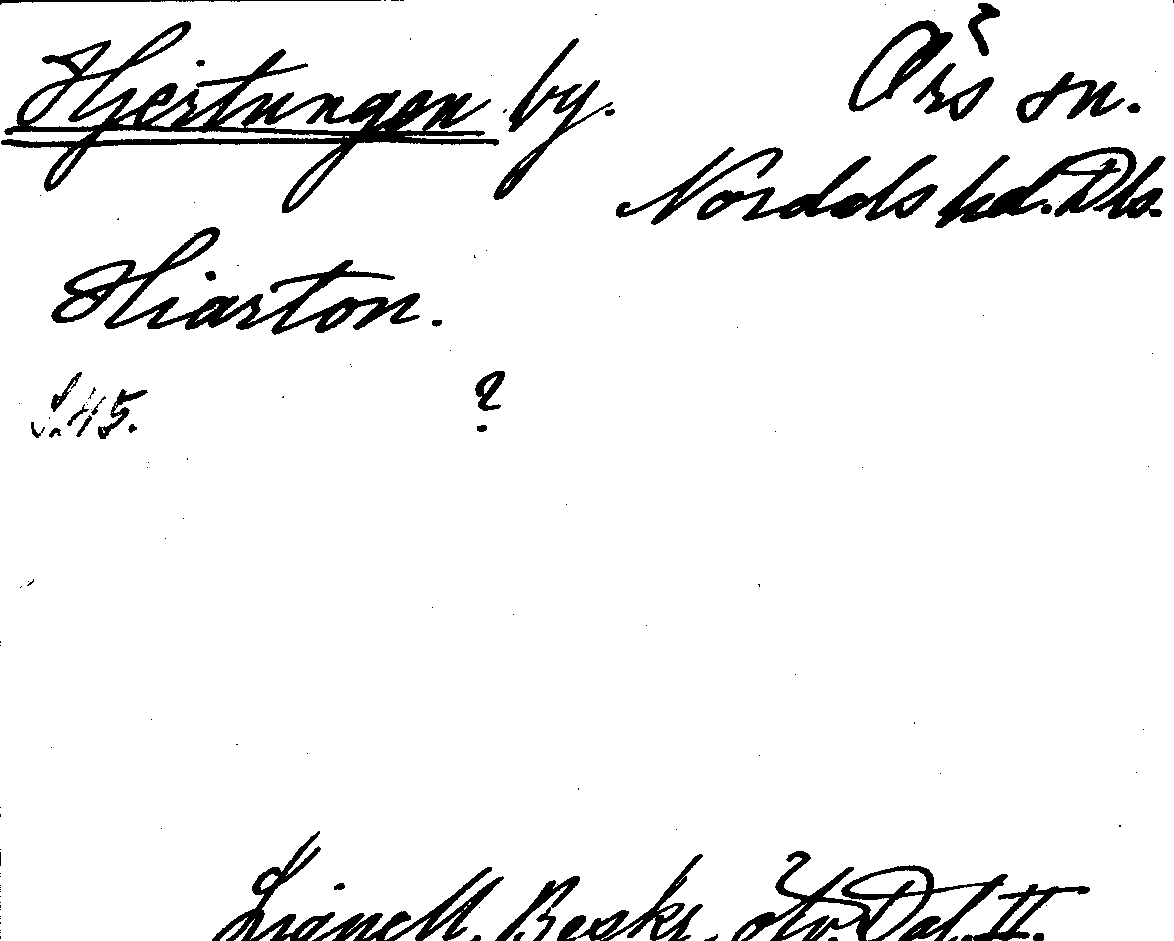 Hjertungen by. Örs sn.
Nordals hd. Dls.
Hiarton.
S.45. ?
Lignell. Beskr. öfv. Dal. II.